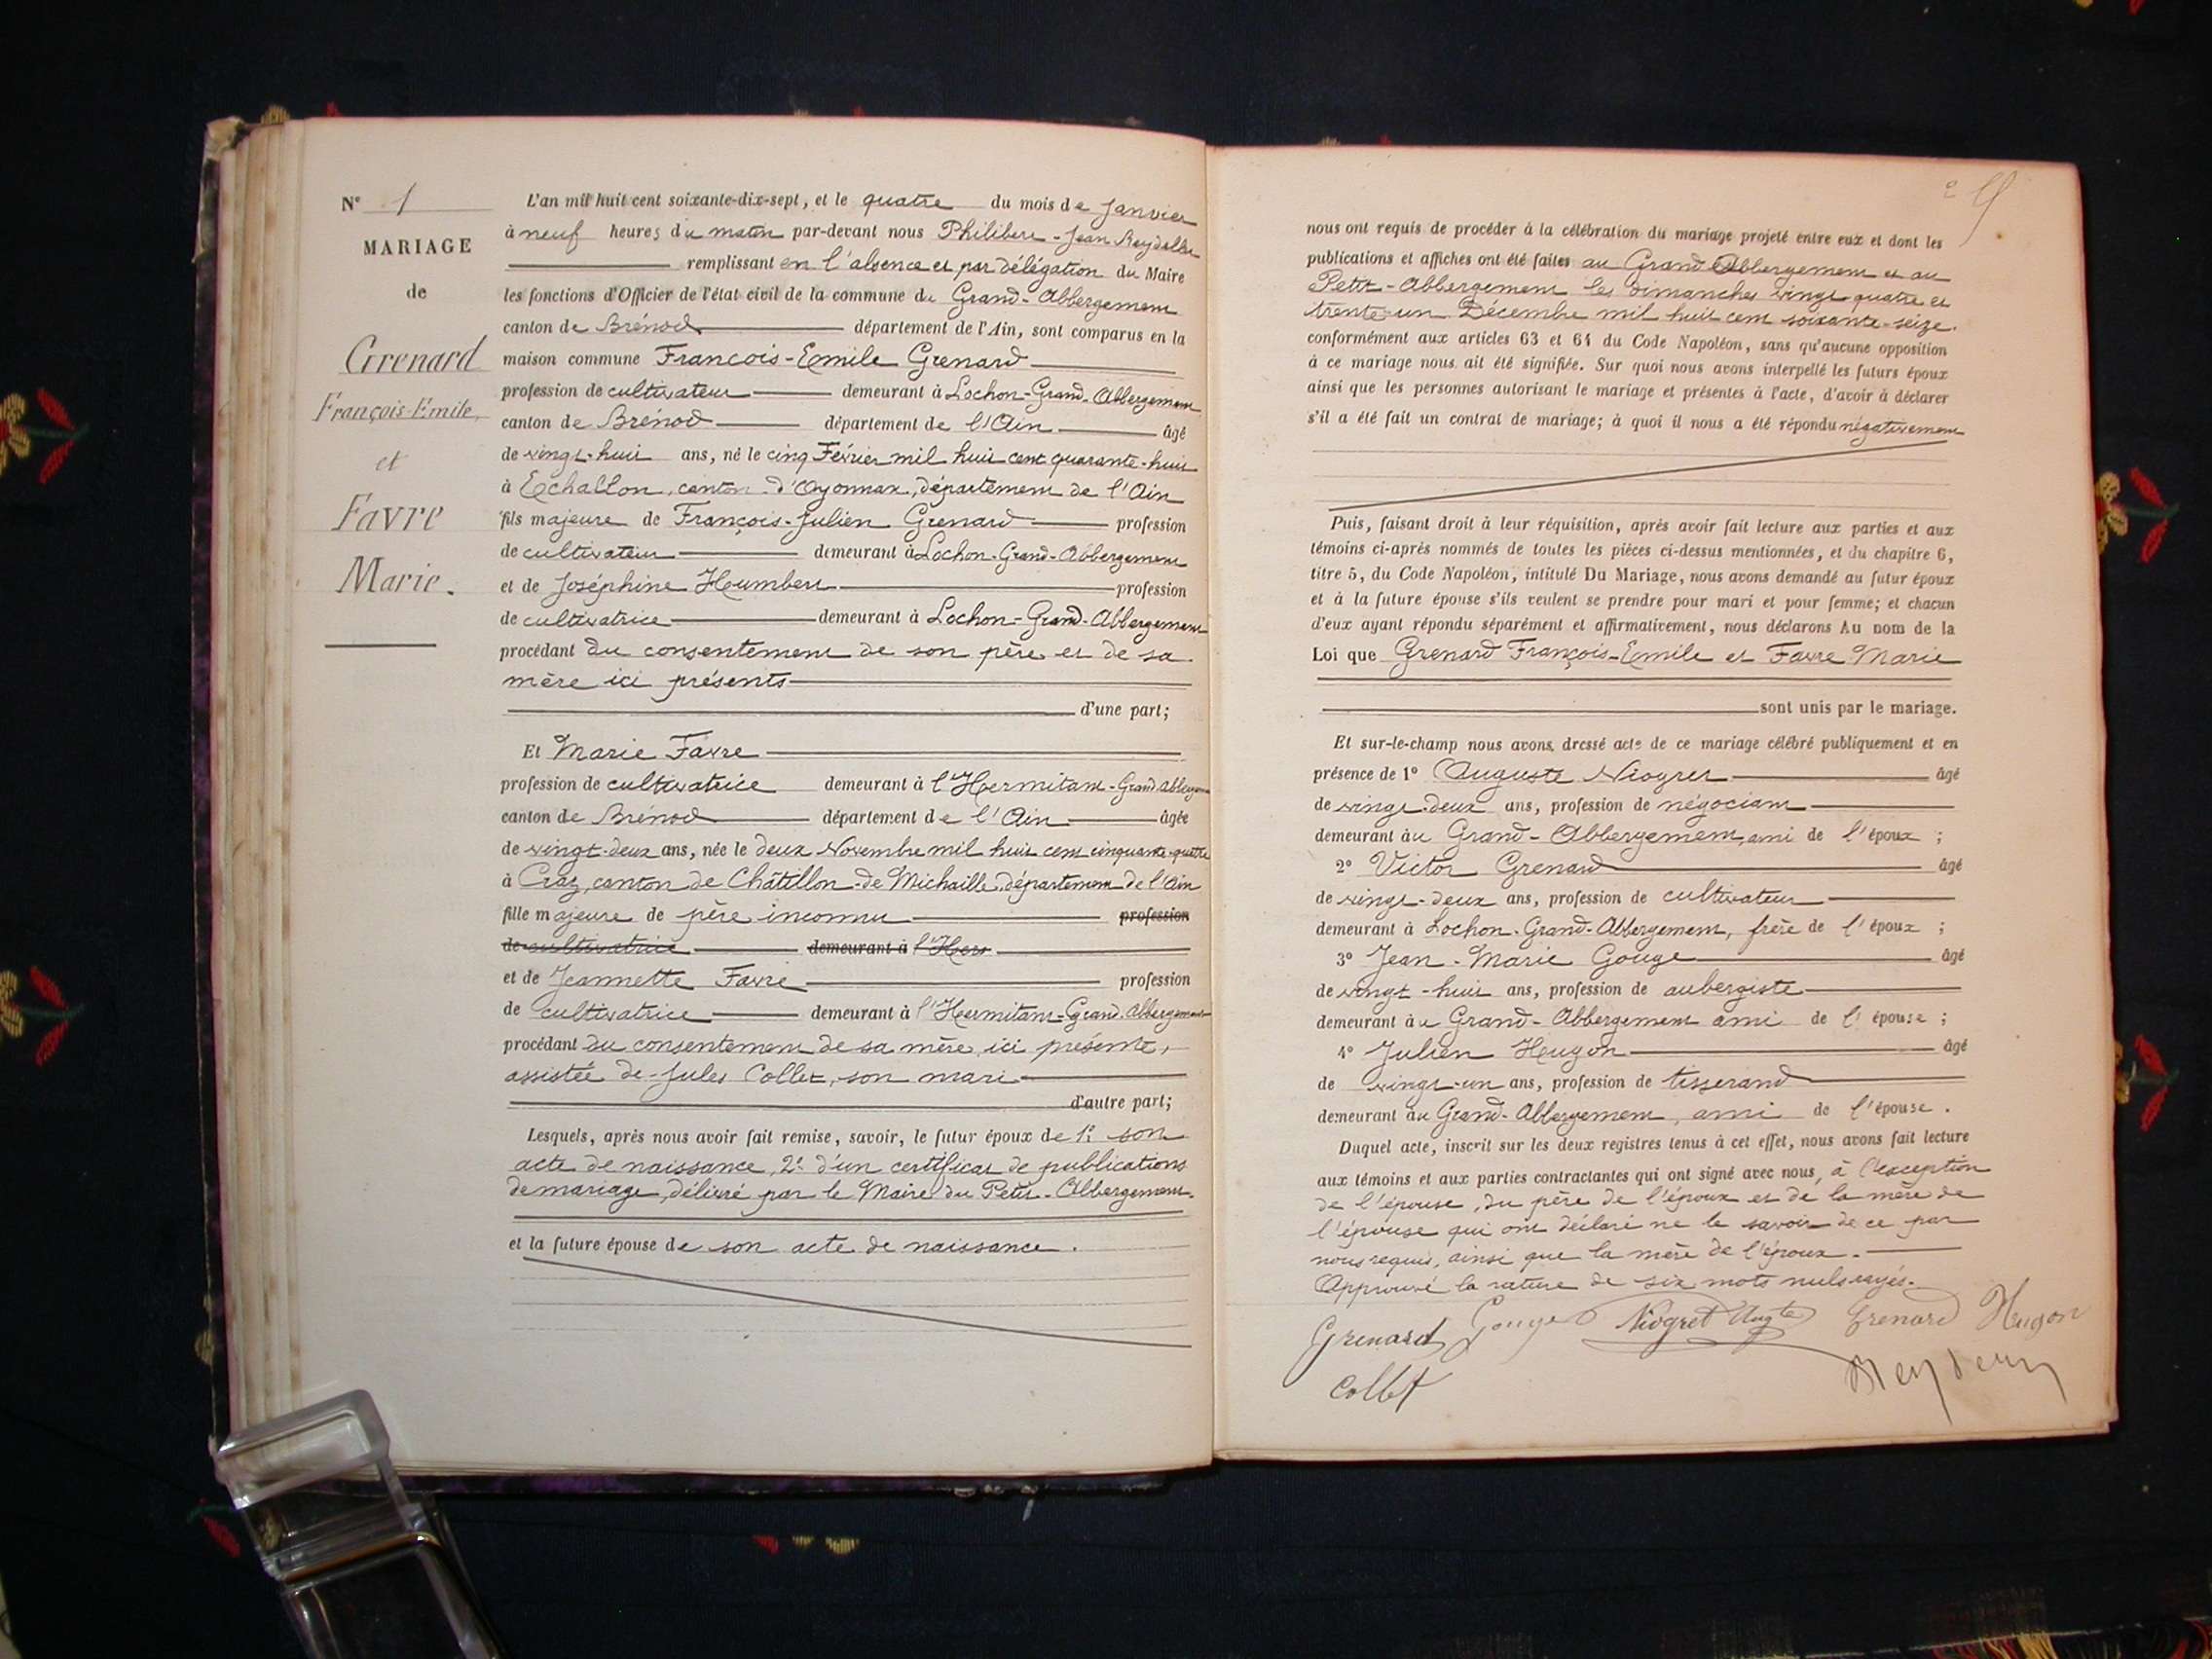 Nº 1
MARIAGE
de
Grenard
François-Emile,
et
Favre
Marie.
L'an mil huit cent soixante-dix-sept, et le quatre du mois de Janvier
à neuf heures du matin par-devant nous Philibert-Jean Reydellet
remplissant en l'absence et par délégation du Maire
les fonctions d'Officier de l'état civil de la commune du Grand-Abbergement
canton de Brénod département de l'Ain, sont comparus en la
maison commune François-Emile Grenard
profession de cultivateur demeurant à Lochon-Grand-Abbergement
canton de Brénod département de l'Ain âgé
de vingt-huit ans, né le cinq Février mil huit cent quarante-huit
à Echallon, canton d'Oyonnax, département de l'Ain
fils majeure de François-Julien Grenard profession
de cultivateur demeurant à Lochon-Grand-Abbergement
et de Joséphine Humbert profession
de cultivatrice demeurant à Lochon-Grand-Abbergement
procédant du consentement de son père et de sa
mère ici présents
d'une part;
Et Marie Favre
profession de cultivatrice demeurant à l'Hermitant-Grand Abbergement
canton de Brénod département de l'Ain âgée
de vingt-deux ans, née le deux Novembre mil huit cent cinquante-quatre
à Craz, canton de Châtillon-de-Michaille, département de l'Ain
fille majeure de père inconnu profession
de cultivatrice demeurant à l'Hers
et de Jeannette Favre profession
de cultivatrice demeurant à l'Hermitant-Grand-Abbergement
procédant du consentement de sa mère, ici présente,
assistée de Jules Collet, son mari
d'autre part;
Lesquels, après nous avoir fait remise, savoir, le futur époux de 1º son
acte de naissance, 2º d'un certificat de publications
de mariage, délivré par le Maire du Petit-Abbergement.
et la future épouse de son acte de naissance.
2
nous ont requis de procéder à la célébration du mariage projeté entre eux et dont les
publications et affiches ont été faites au Grand Abbergement et au
Petit-Abbergement les dimanches vingt-quatre et
trente-un Décembre mil huit cent soixante-seize.
conformément aux articles 63 et 64 du Code Napoléon, sans qu'aucune opposition
à ce mariage nous ait été signifiée. Sur quoi nous avons interpellé les futurs époux
ainsi que les personnes autorisant le mariage et présentes à l'acte, d'avoir à déclarer
s'il a été fait un contrat de mariage; à quoi il nous a été répondu négativement
Puis, faisant droit à leur réquisition, après avoir fait lecture aux parties et aux
témoins ci-après nommés de toutes les pièces ci-dessus mentionnées, et du chapitre 6,
titre 5, du Code Napoléon, intitulé Du Mariage, nous avons demandé au futur époux
et à la future épouse s'ils veulent se prendre pour mari et pour femme; et chacun
d'eux ayant répondu séparément et affirmativement, nous déclarons Au nom de la
Loi que Grenard François-Emile et Favre Marie
sont unis par le mariage.
Et sur-le-champ nous avons dressé acte de ce mariage célébré publiquement et en
présence de 1º Auguste Niogret âgé
de vingt-deux ans, profession de négociant
demeurant au Grand-Abbergement, ami de l'époux ;
2º Victor Grenard âgé
de vingt-deux ans, profession de cultivateur
demeurant à Lochon-Grand-Abbergement, frère de l'époux ;
3º Jean-Marie Gouge âgé
de vingt-huit ans, profession de aubergiste
demeurant au Grand-Abbergement ami de l'épouse ;
4º Julien Hugon âgé
de vingt-un ans, profession de tisserand
demeurant au Grand-Abbergement, ami de l'épouse.
Duquel acte, inscrit sur les deux registres tenus à cet effet, nous avons fait lecture
aux témoins et aux parties contractantes qui ont signé avec nous, à l'exception
de l'épouse, du père de l'époux et de la mère de
l'épouse qui ont déclaré ne le savoir de ce par
nous requis, ainsi que la mère de l'époux.
Approuvé la rature de six mots nuls rayés.
Grenard Gouge Niogret Augte Grenard Hugon
Collet